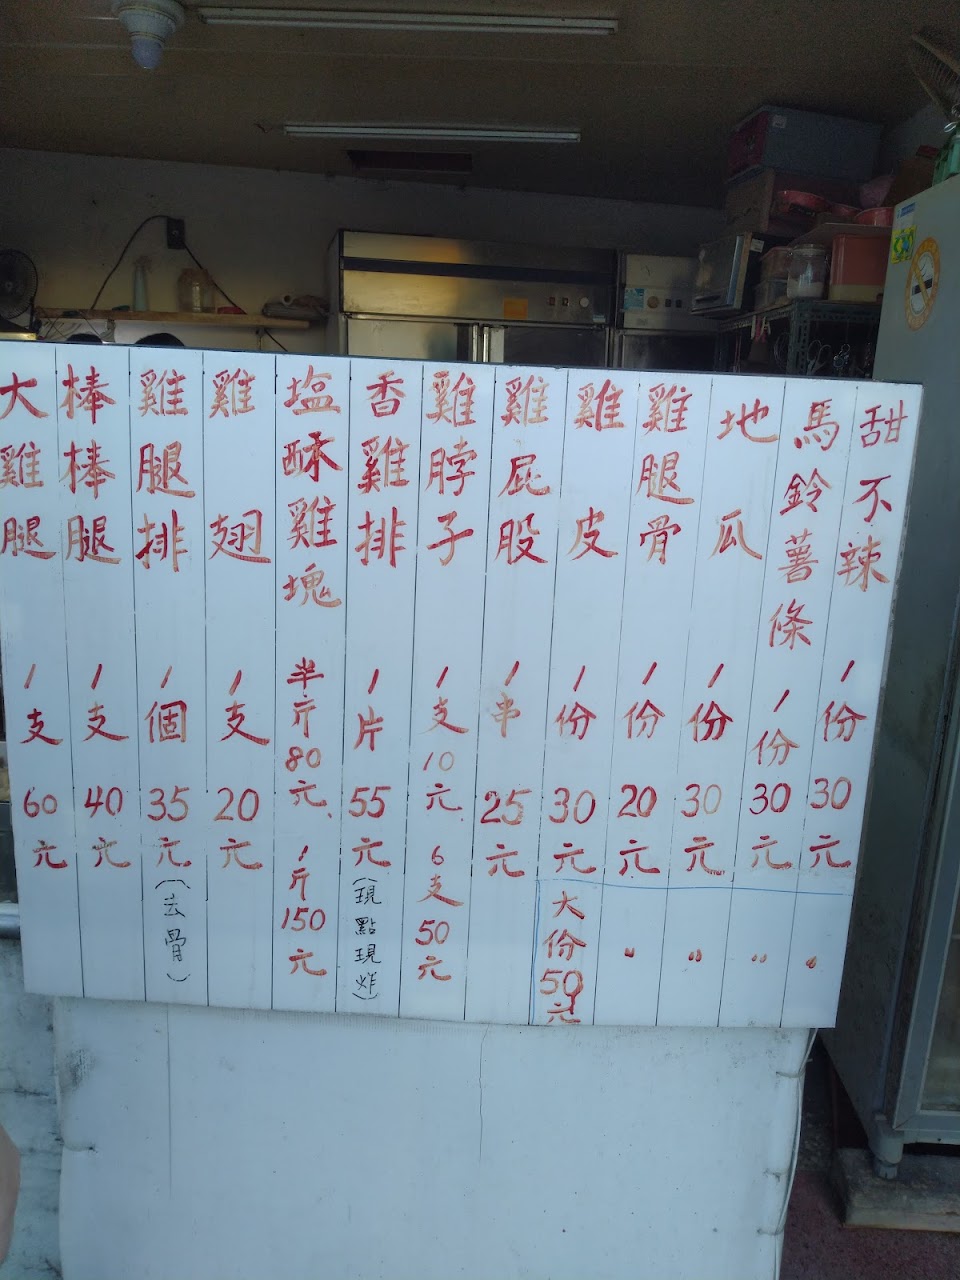 甜不辣 1份30元 〃
馬鈴薯條 1份30元 〃
地瓜 1份30元 〃
雞腿骨 1份20元 〃
雞皮 1份30元 大份50元
雞屁股 1串25元
雞脖子 1支10元 6支50元
香雞排 1片55元(現點現炸)
塩酥雞塊 半斤80元、1斤150元
雞翅 1支20元
雞腿排 1個35元(去骨)
棒棒腿 1支40元
大雞腿 1支60元